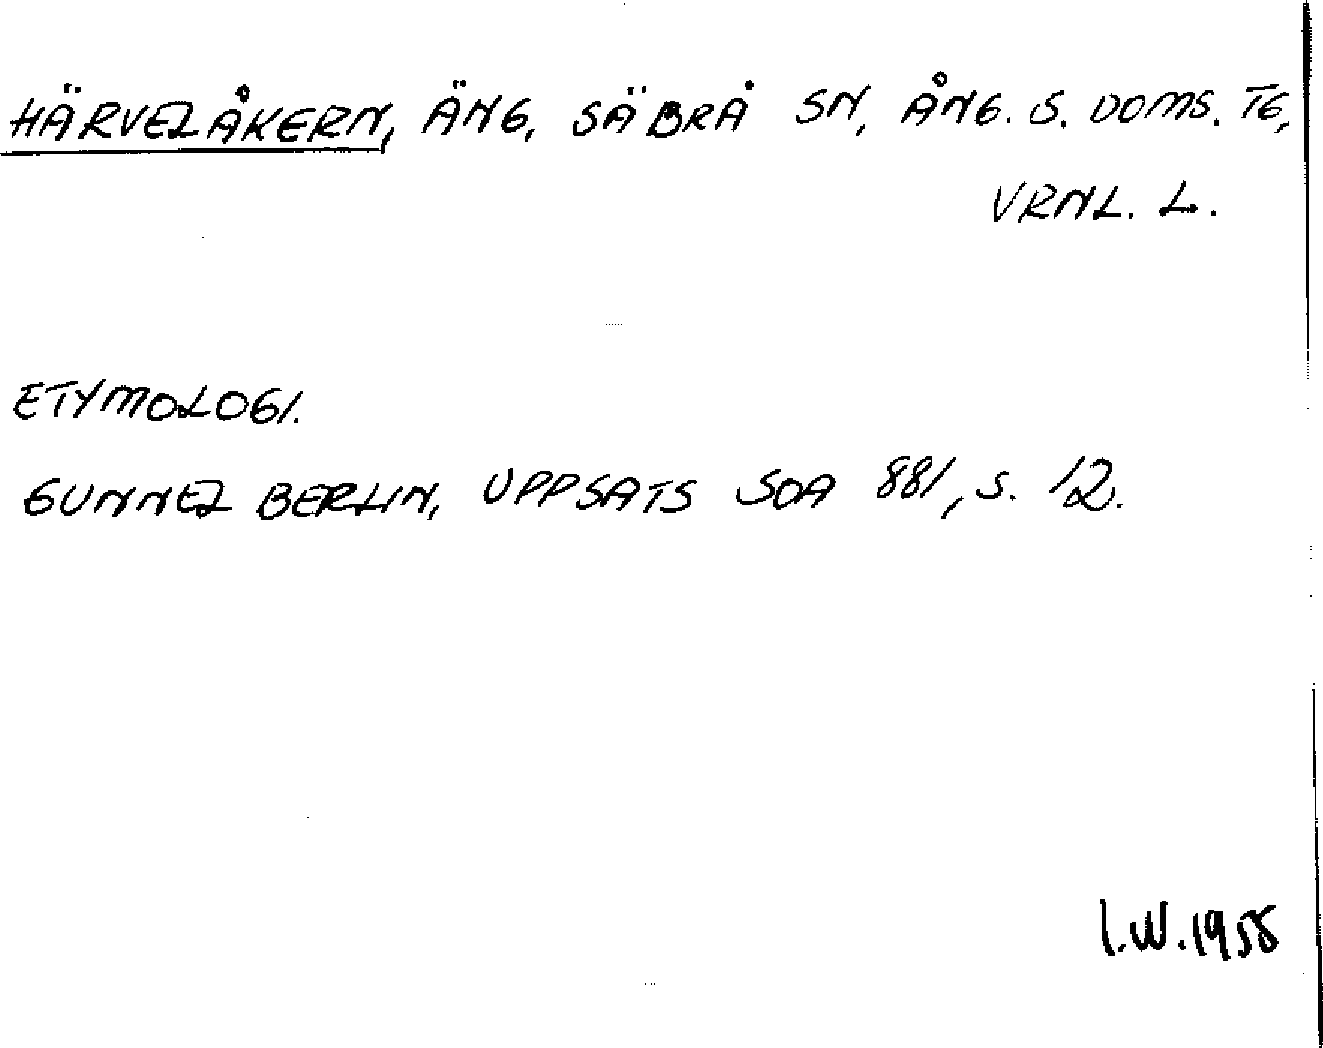 HÄRVELÅKERN, ÄNG, SÄBRÅ SN, ÅNG. S. DOMS. TG,
VRNL. L.
ETYMOLOGI.
GUNNEL BERLIN, UPPSATS SOA 881, S. 12.
I.W. 1958